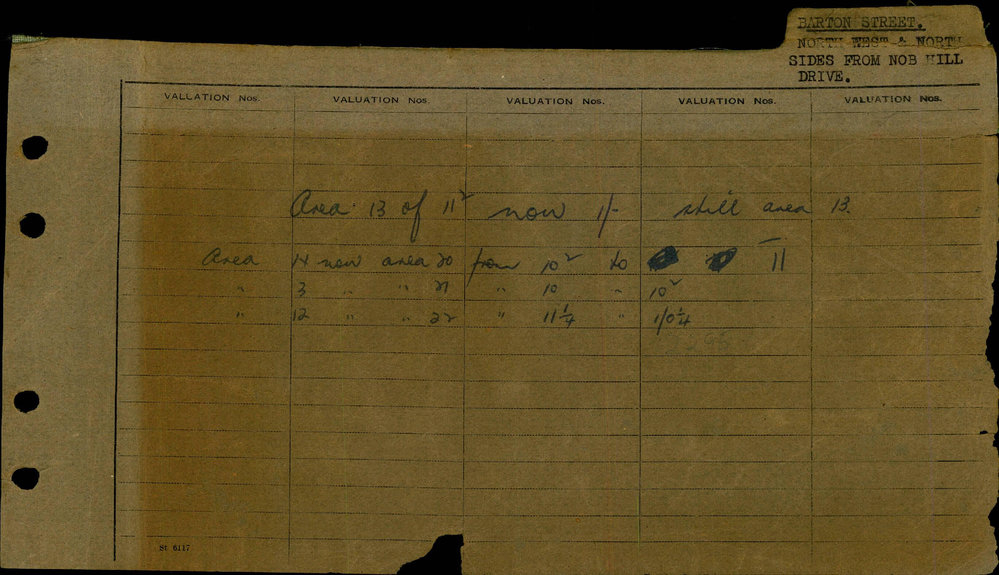 BARTON STREET.
NORTH WEST & NORTH
SIDES FROM NOB HILL
DRIVE.
VALUATION Nos. VALUATION Nos. VALUATION Nos. VALUATION Nos. VALUATION Nos.
Area 13 of 11² now 1/- still area 13.
Area 14 now area 20 from 10² to 11
" 3 " " 21 " 10 " 10²
" 12 " " 22 " 11¼ " 1/0¼
St 6117